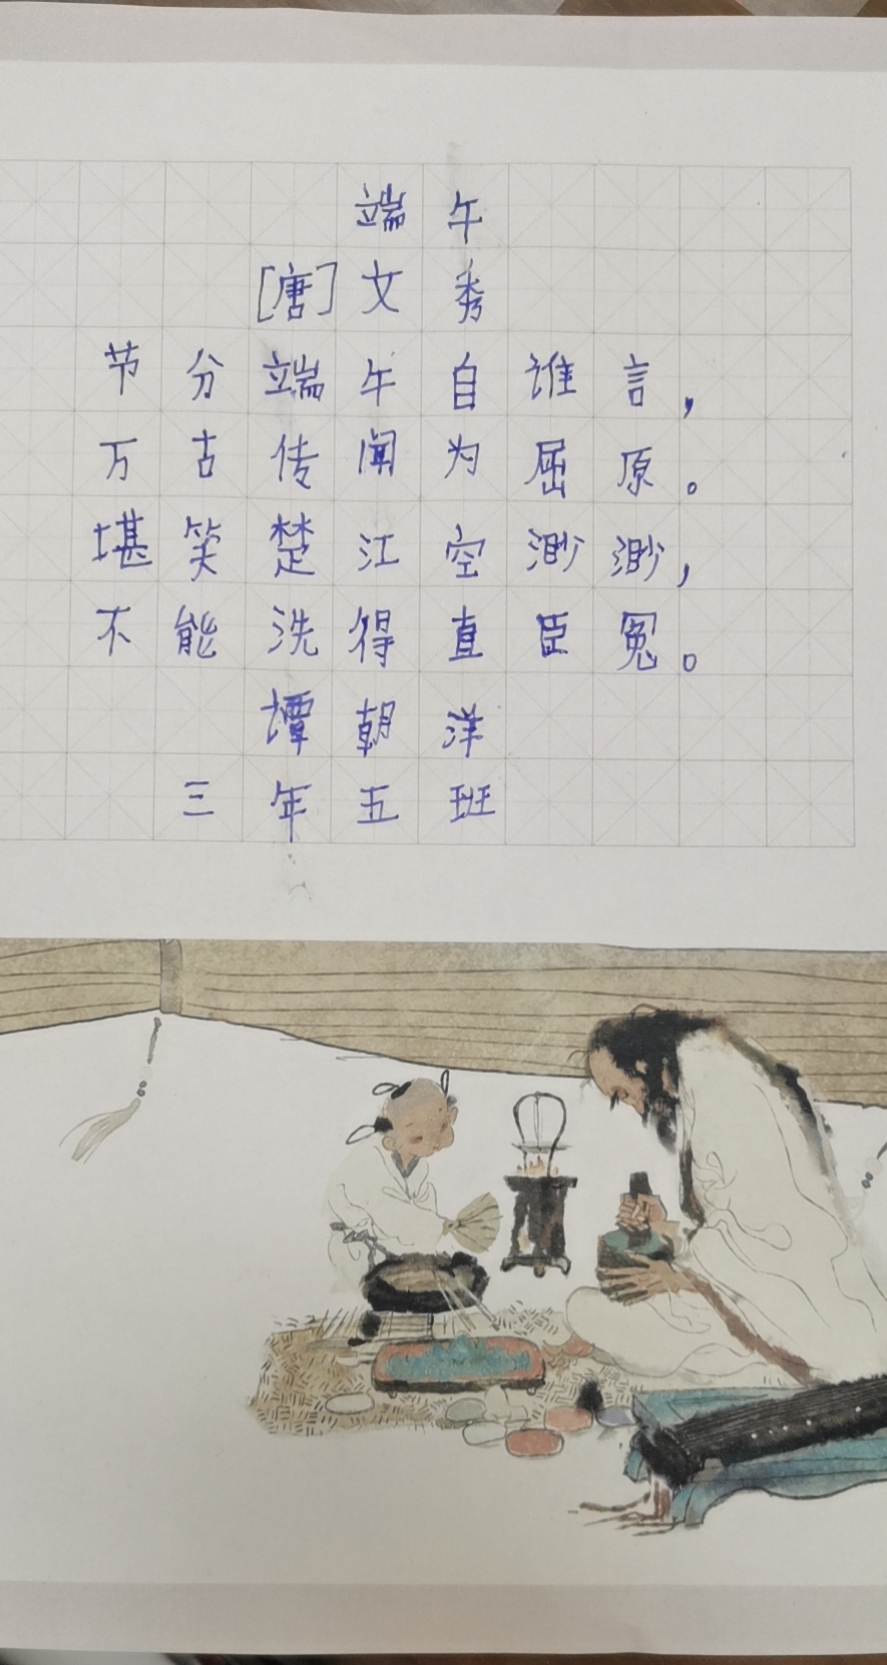 端午
[唐]文秀
节分端午自谁言，
万古传闻为屈原。
堪笑楚江空渺渺，
不能洗得直臣冤。
谭朝洋
三年五班